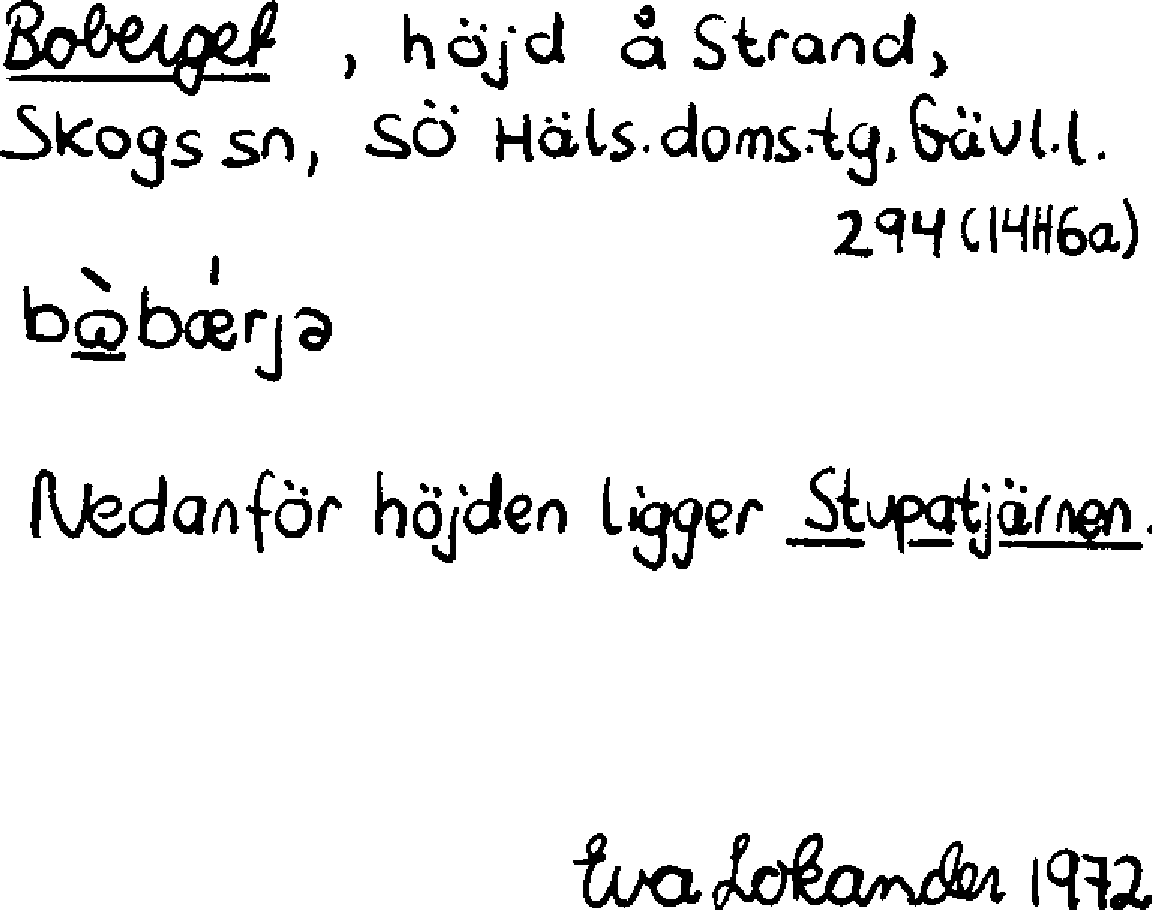 Boberget, höjd å Strand,
Skogs sn, SÖ Häls.doms.tg, Gävl.l.
294 (14H6a)
bɷ̱̀bǽrjə
Nedanför höjden ligger Stupatjärnen.
Eva Lokander 1972